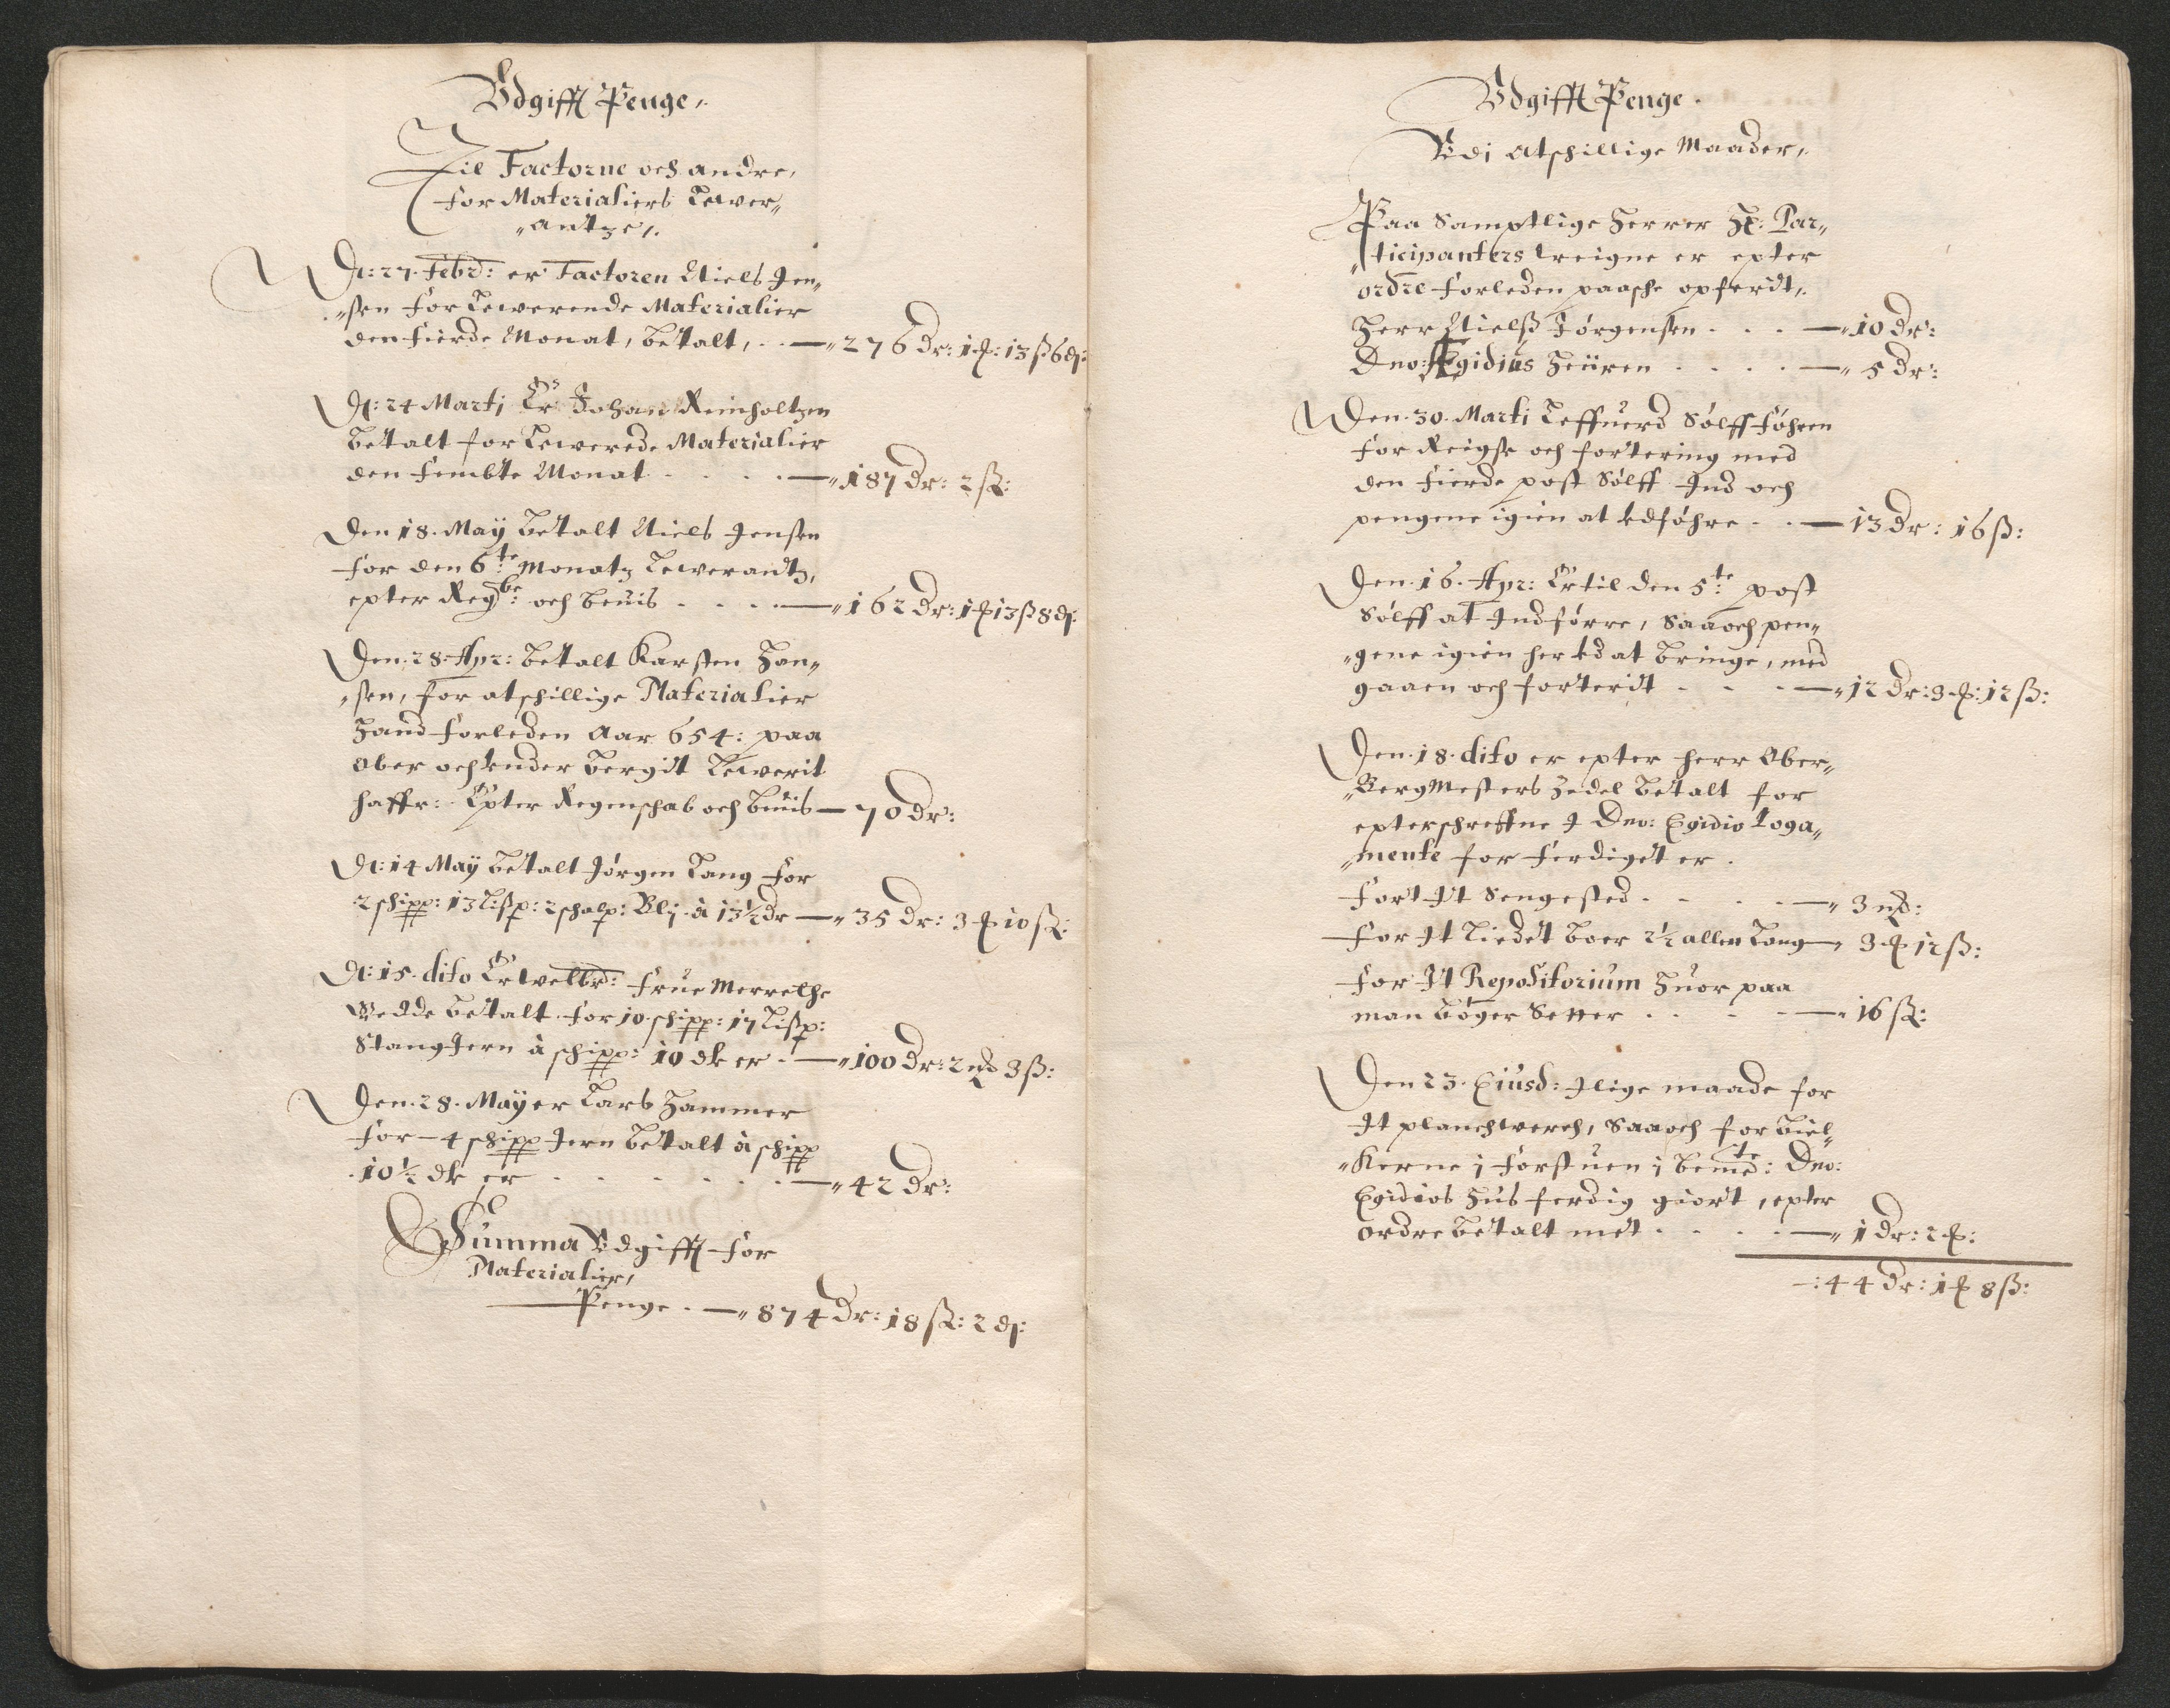 Vdgifft Penge,
Til Factorne och andre,
for Materialiers Lewer„
„antze,
D: 27. Febr: er Factoren Niels Jen„
„sen for Lewerende Materialier
den fierde Monat, betalt, . . —„ 276 Dr: 1 ƒ: 13 ß 6 ₰:
D: 24 Martj Er Johan Reinholtzen
betalt for Lewerede Materialier
den fembte Monat . . . . —„ 187 Dr: 2 ß:
Den 18. Maÿ betalt Niels Jensen
for den 6:te Monatz Lewerantz,
epter Regbe: och beuis . . . . —„ 162 Dr: 1 ƒ 13 ß 8 ₰:
Den. 28. Apr: betalt Karsten Han„
„sen, for atschillige Materialier
Hand forleden Aar 654: paa
ober och vnder bergit Lewerit
haffr: Epter Regenschab och beuis — 70 Dr:
D: 14 Maÿ betalt Jørgen Lang for
2 schipp: 13 Lißp: 2 schalp: Blj. à 13½ Dr —„ 35 Dr: 3 ƒ 10 ß:
D: 15. dito Er Welbr: Frue Merrethe
betalt for 10. schipp: 17 Lißp:
Stang Jern à schipp: 10 dlr er . —„ 100 Dr: 2 mƒ 3 ß:
Den. 28. Maÿ er Lars Hammer
for — 4 schipp Jern betalt à schipp
10½ dlr er . . . . . . —„ 42 Dr:
Summa Vdgifft for
Materialier,
Penge . —„ 874 Dr: 18 ß: 2 ₰:
Vdgifft Penge.
Vdj Atschillige Maader,
Paa Samptlige Herrer H: Par„
„ticipanters weigne er epter
ordre forleden paasche opferdt,
Herr Nielß Jørgensen . . . —„ 10 Dr:
Dno: Ægidius Heüren . . . . —„ 5 Dr:
Den. 30. Marti Leffuerd Sølff føhren
for Reigse och fortering med
den fierde post Sølff Ind och
pengene igien at vdføhre . . — 13 Dr: 16 ß:
Den. 16. Apr: Er til den 5:te post
Sølff at Indførre, Saa och pen„
„gene igien her vd at bringe, med
gaaen och forterit . . . —„ 12 Dr: 3 ƒ: 12 ß:
Den. 18. dito er epter Herr Ober„
„BergMesters Zedel betalt for
epterschreffne J Dno: Egidio Loga„
„mente for ferdiget er.
for Jt Sengested . . . . —„ 3 mƒ:
for Jt Liedet boer 2½ allen Lang —„ 3 ƒ 12 ß:
for Jt Repositorium Huor paa
man bøger Setter . . . . —„ 16 ß:
Den 23. Eiusd: Jlige maade for
Jt planchwerch, Saa och for biel„
„kerne j forstuen j bemte: Dno:
Egidios Hus ferdig giort, epter
ordre betalt met . . . . —„ 1 Dr: 2 ƒ:
—: 44 Dr: 1 ƒ 8 ß: